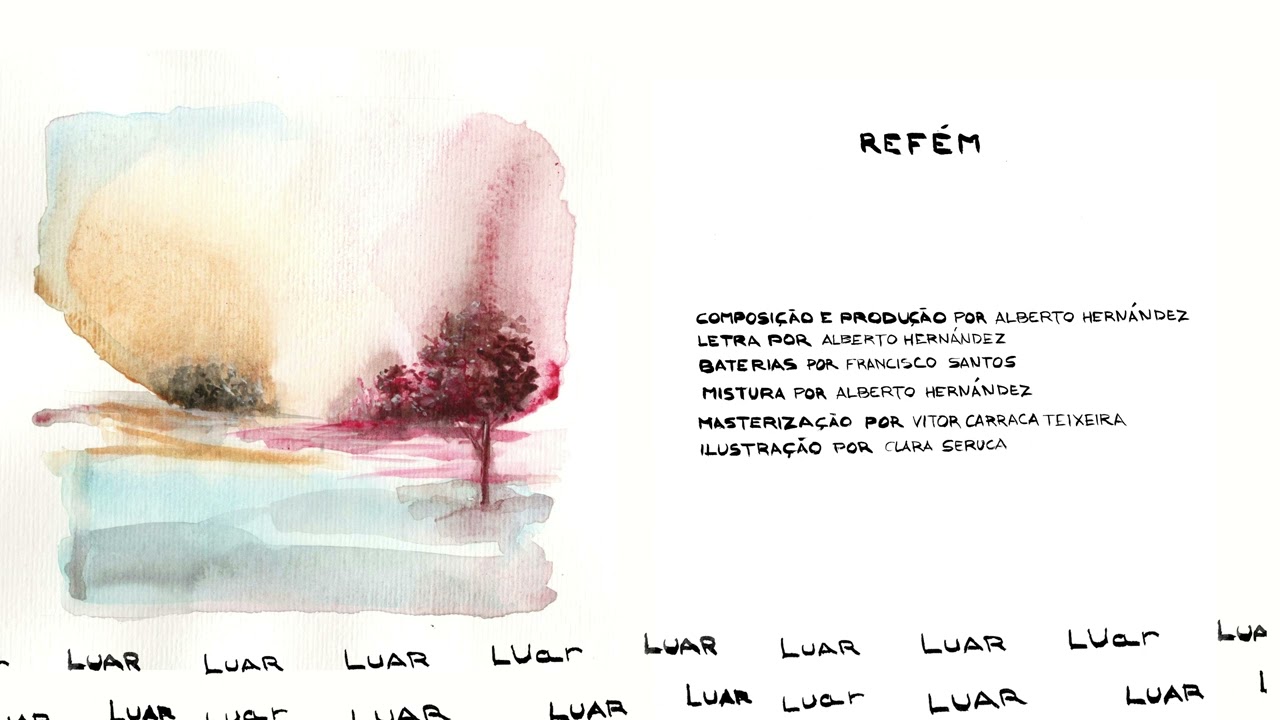 REFÉM
COMPOSIÇÃO E PRODUÇÃO POR ALBERTO HERNÁNDEZ
LETRA POR ALBERTO HERNÁNDEZ
BATERIAS POR FRANCISCO SANTOS
MISTURA POR ALBERTO HERNÁNDEZ
MASTERIZAÇÃO POR VITOR CARRACA TEIXEIRA
ILUSTRAÇÃO POR CLARA SERUCA
LUAR LUAR LUAR LUar LUAR LUAR LUAR LUar
LUAR Luar LUAR LUAR LUAR Luar LUAR LUAR